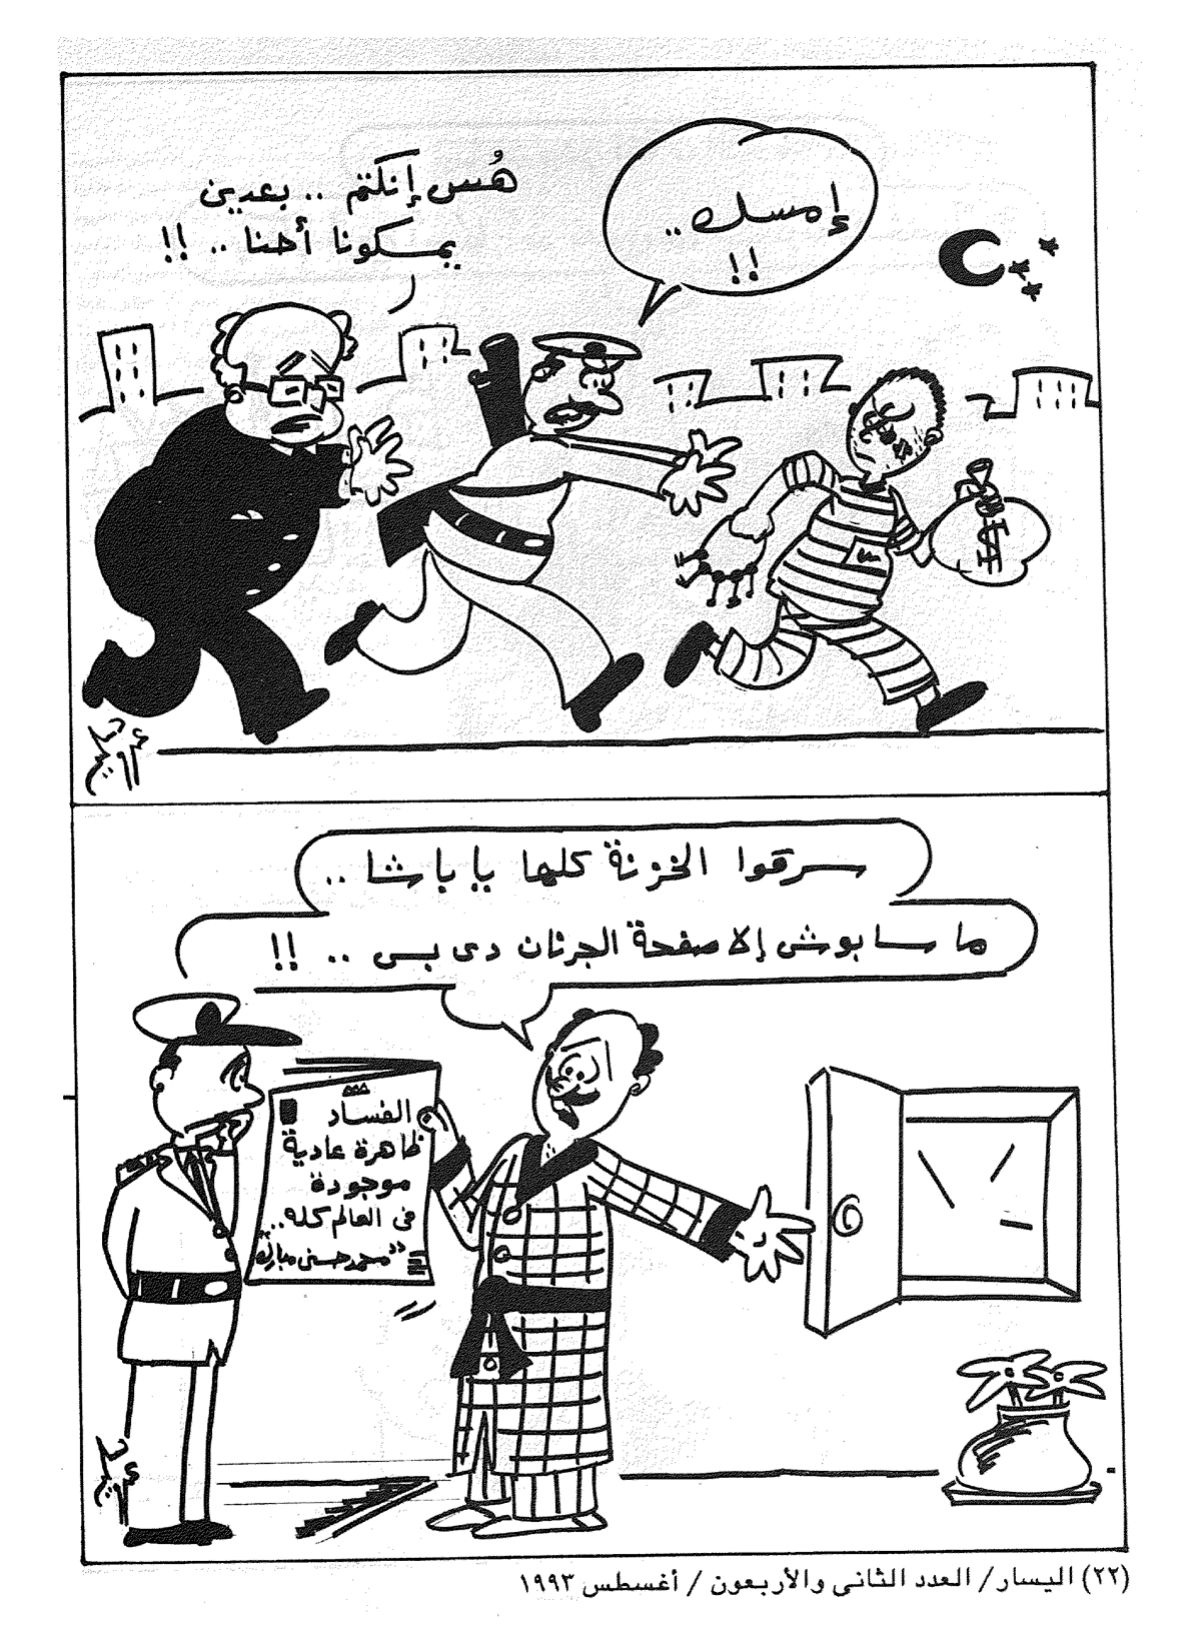 هُس إنكتم .. بعدين
يمسكونا أحنا .. !!
إمسك ..
!!
سرقوا الخزنة كلها يا باشا ..
ما سابوش إلا صفحة الجرنان دى بس .. !!
الفساد
ظاهرة عادية
موجودة
فى العالم كله ..
"محمد حسنى مبارك"
(٢٢) اليسار / العدد الثانى والأربعون / أغسطس ١٩٩٣